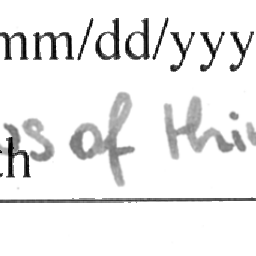 mm/dd/yyy
of thi
th